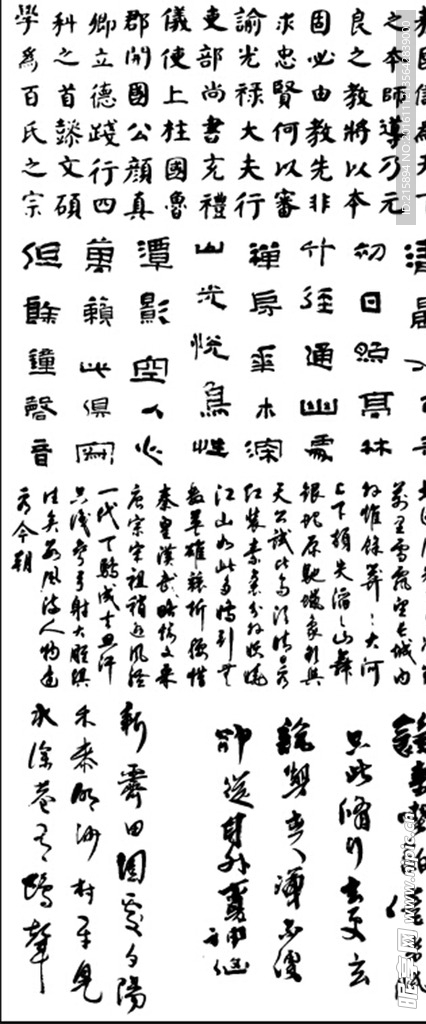 之本師導乃元
良之教將以本
固必由教先非
求忠賢何以審
諭光禄大夫行
吏部尚書充禮
儀使上柱國魯
郡開國公顔真
卿立德踐行四
科之首懿文碩
學為百氏之宗
初日照高林
竹徑通幽處
禪房花木深
山光悅鳥性
潭影空人心
萬籟此俱寂
但餘鐘磬音
萬里雪飄望長城内
外惟餘莽〻大河
上下頓失滔〻山舞
銀蛇原馳蠟象欲與
天公試比高須晴日看
紅裝素裹分外妖嬈
江山如此多嬌引無
數英雄競折腰惜
秦皇漢武略輸文采
唐宗宋祖稍遜風騷
一代天驕成吉思汗
只識彎弓射大雕俱
往矣數風流人物還
看今朝
只此脩行玄更玄
卻從身外覓
新霽田園處夕陽
禾黍明沙村平見
水深巷有鷗聲